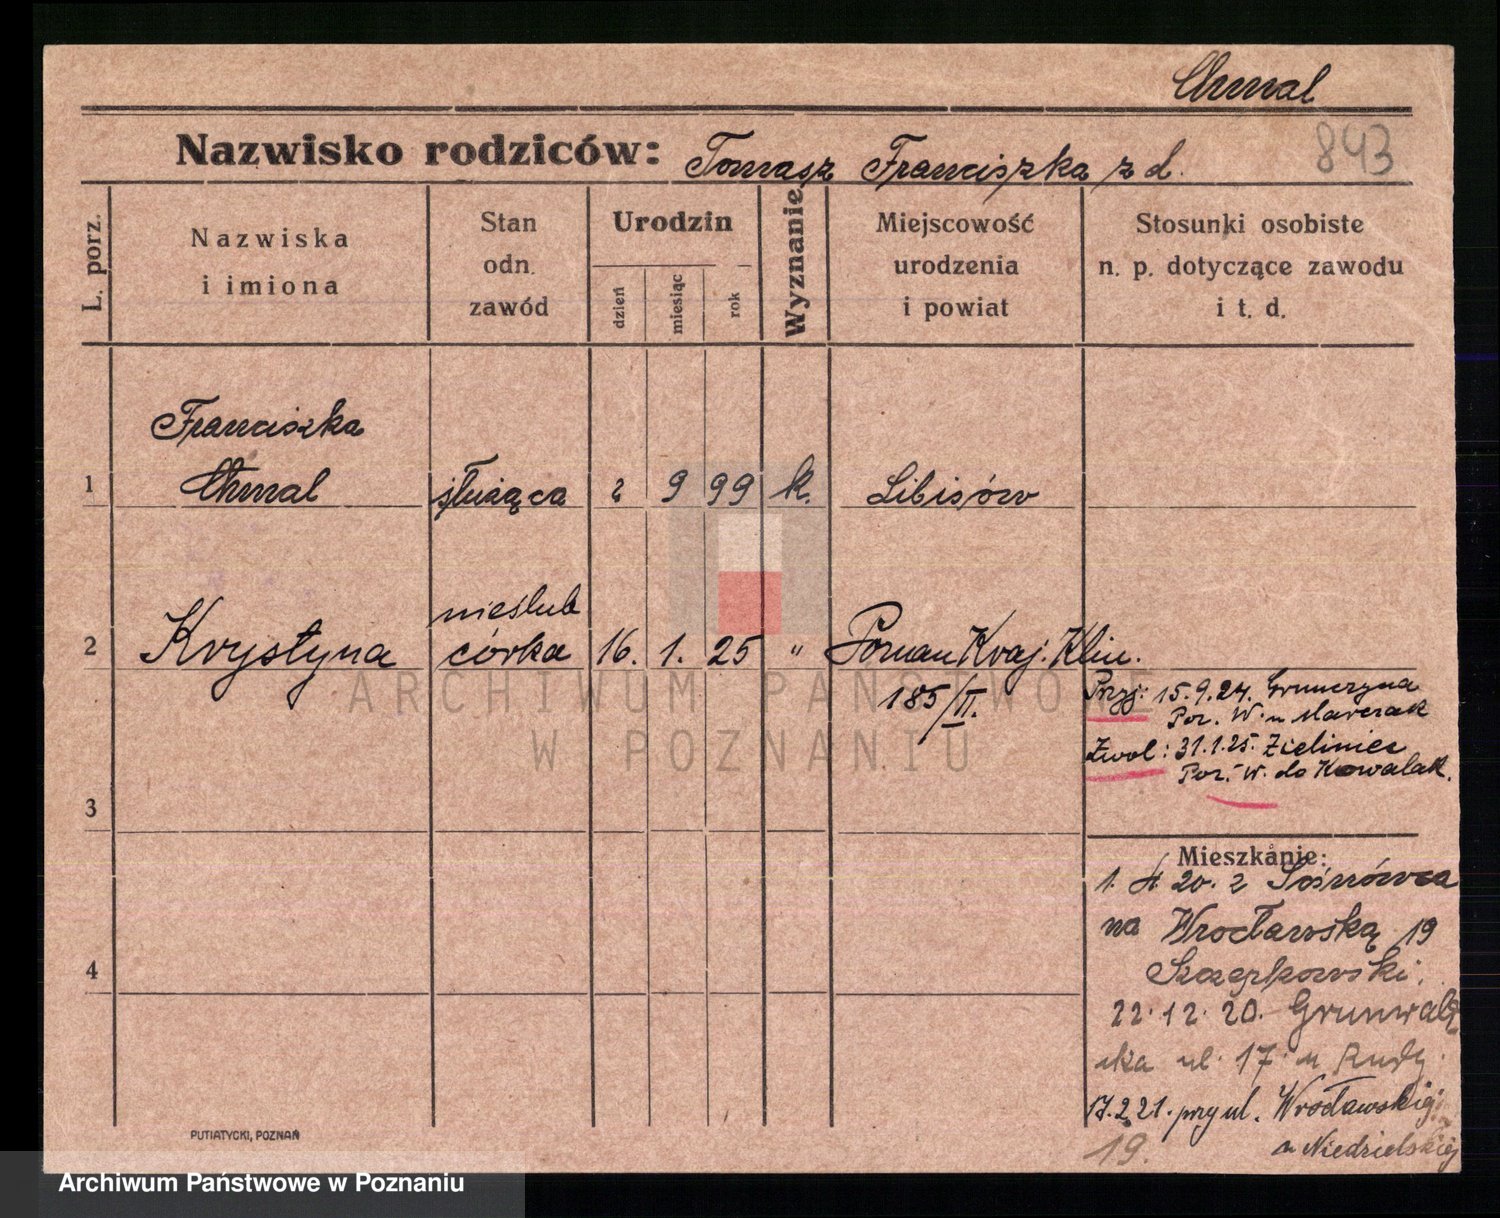 Chmal
Nazwisko rodziców: Tomasz Franciszka z d. 843
L. porz.
Nazwiska
i imiona
Stan
odn.
zawód
Urodzin
dzień
miesiąc
rok
Wyznanie
Miejscowość
urodzenia
i powiat
Stosunki osobiste
n. p. dotyczące zawodu
i t. d.
Franciszka
1 Chmal służąca 2 9 99 k. Libiszów
nieślub
2 Krystyna córka 16. 1. 25 " Poznań Kraj. Klin.
185/II.
Przyj: 15.9.24. Gruszczyna
Poz. W. u Marczak
Zwol: 31.1.25. Zieliniec
Poz. W. do Kowalak.
3
Mieszkanie:
1. 4 20. z Sośnówca
na Wrocławską 19
Szczepkowski.
4
22.12.20. Grunwaldz
ska ul. 17. u Rudy.
17.2.21. przy ul. Wrocławskiej
19. u Niedzielskiej
PUTIATYCKI, POZNAŃ
ARCHIWUM PAŃSTWOWE
W POZNANIU
Archiwum Państwowe w Poznaniu